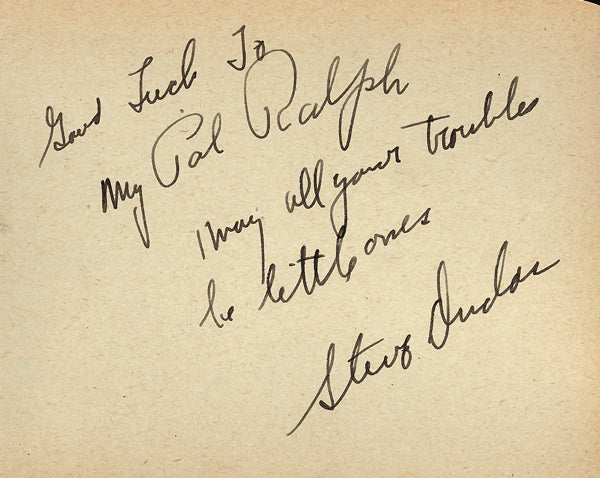 Good Luck To
My Pal Ralph
may all your troubles
be little ones
Steve